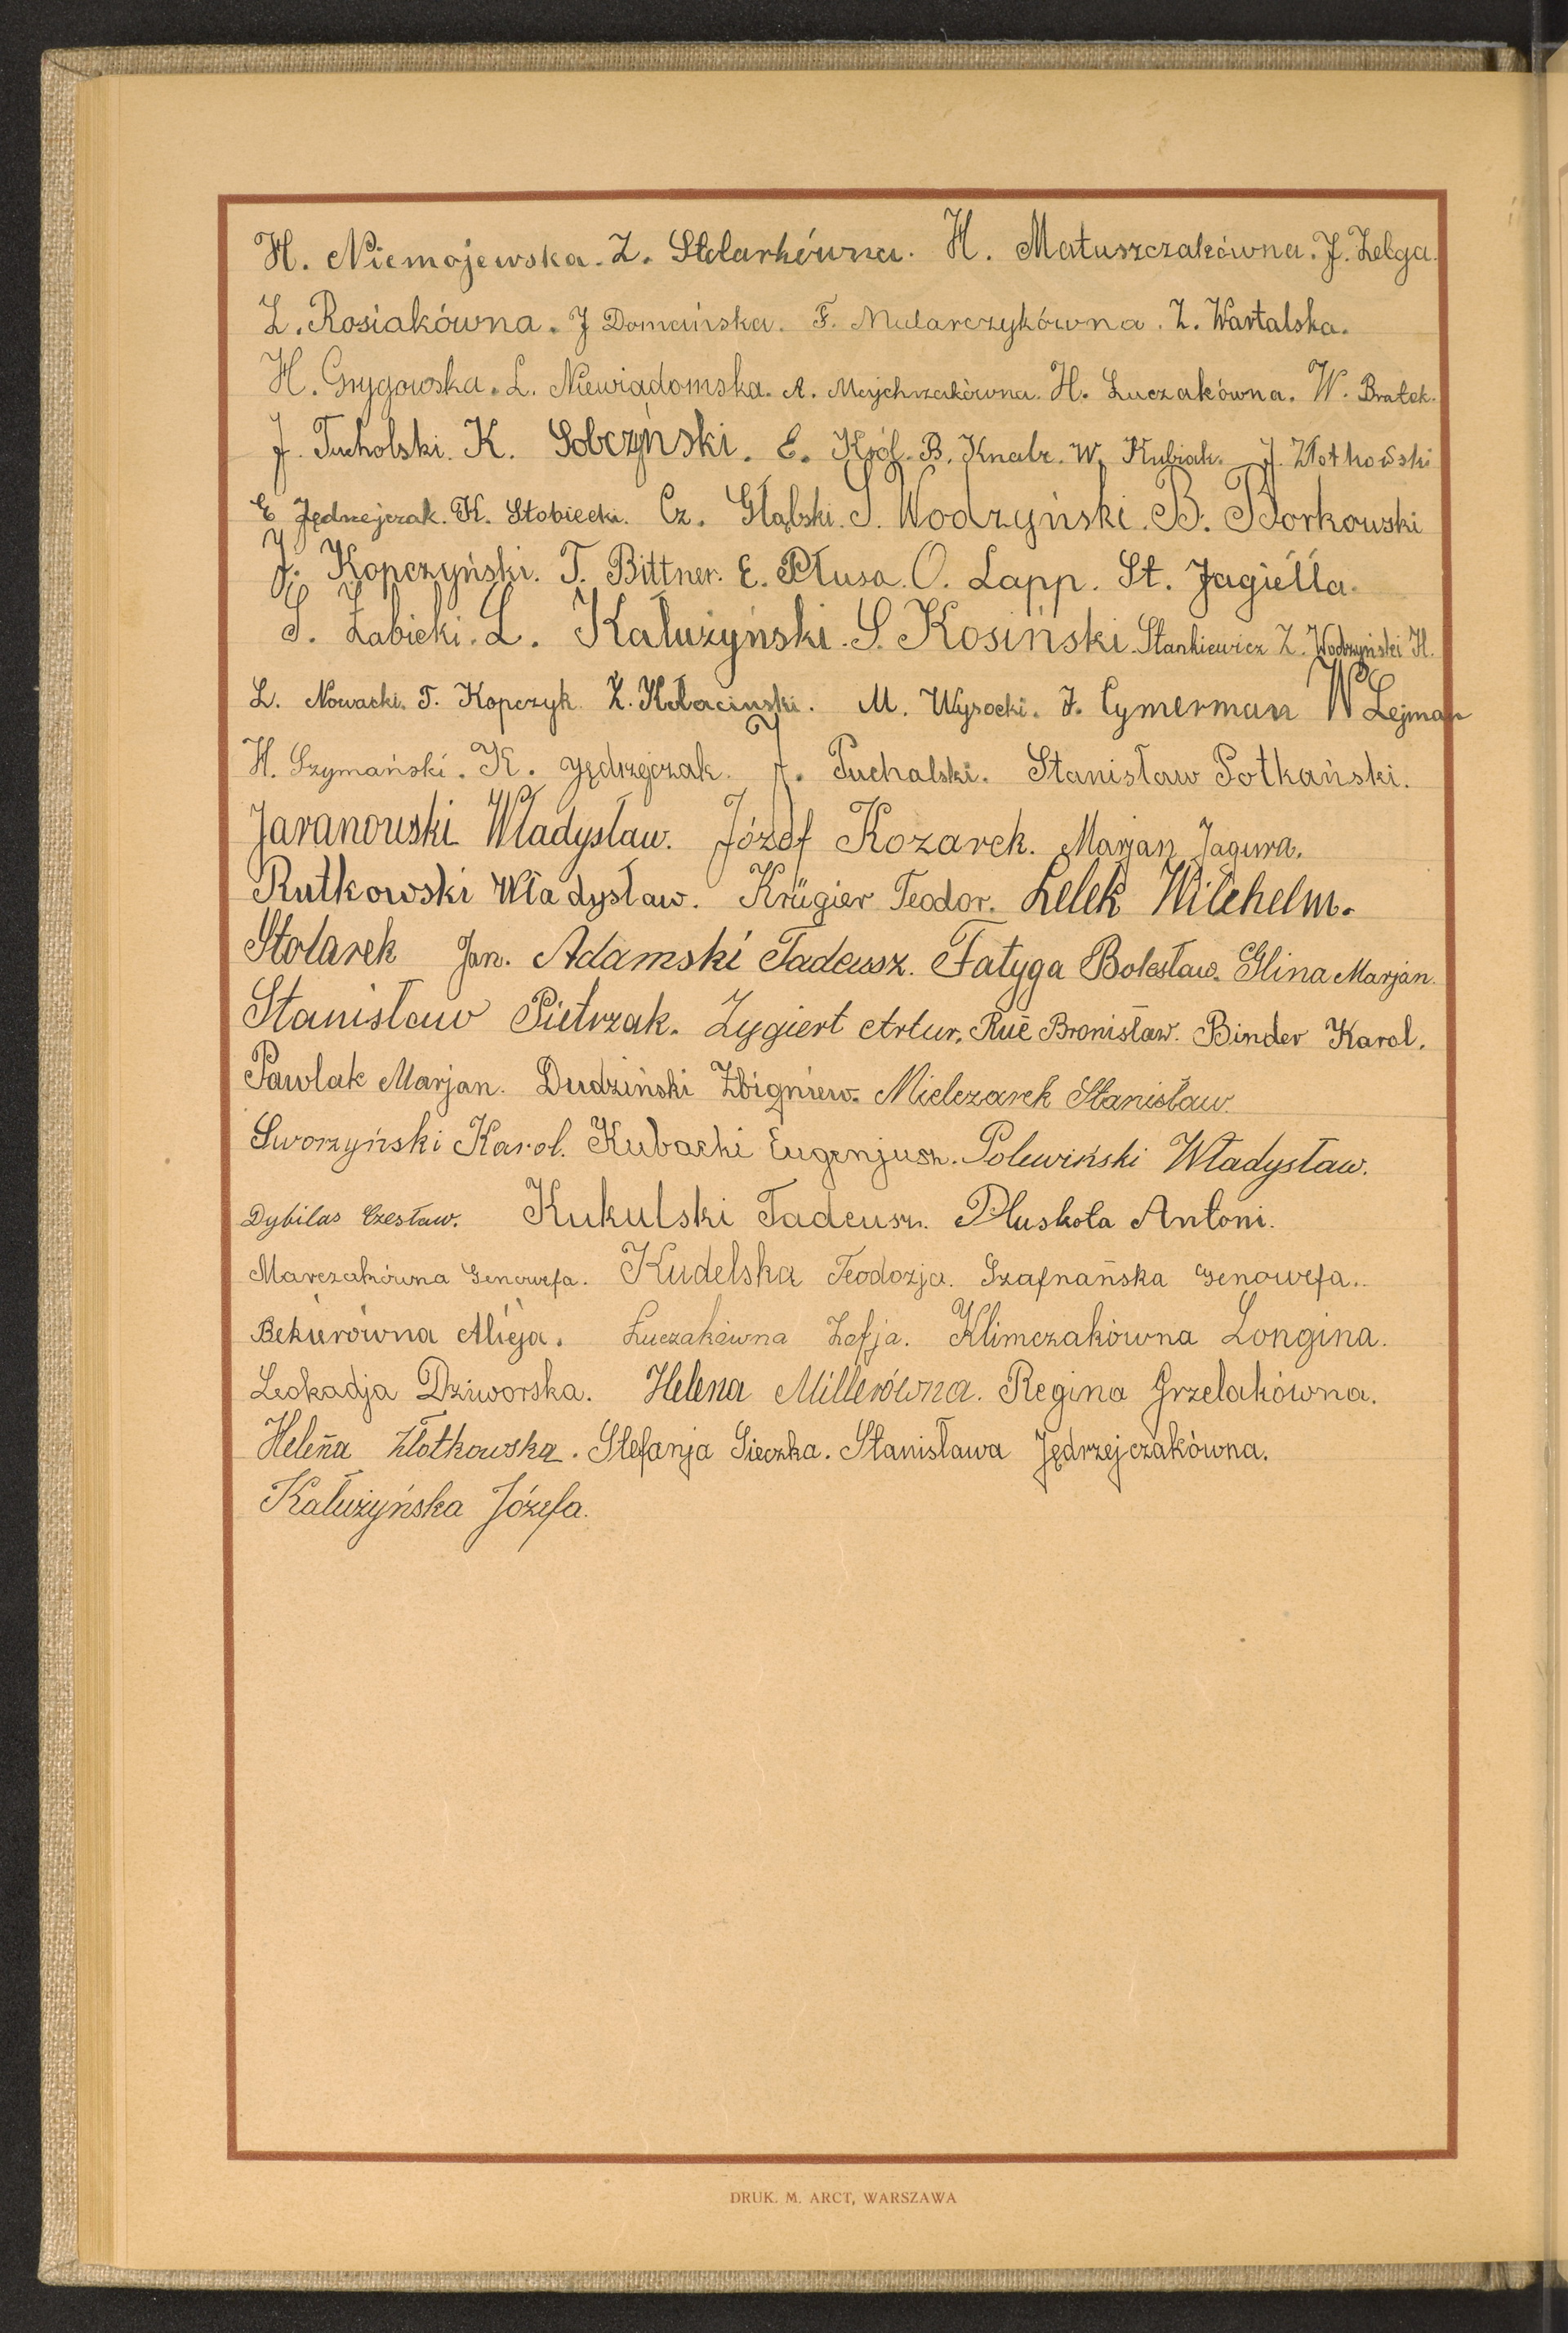 H. Niemojewska. Z. Stolarkówna. H. Matuszczakówna. J. Zelga.
Z. Rosiakówna. J Domańska. F. Mularczykówna. Z. Wartalska.
H. Grygowska. L. Niewiadomska. A. Majchrzakówna. H. Łuczakówna. W. Bratek.
J. Tucholski. K. Sobczyński. E. Król. B. Knabr. W. Kubiak. J. Złotkowski
E Jędrzejczak. K. Słobiecki. Cz. Głąbski. S. Wodzyński. B. Borkowski
J. Kopczyński. T. Bittner. E. Płusa. O. Lapp. St. Jagiełła.
S. Żabicki. L. Kałużyński. S. Kosiński. Stankiewicz Z. Wodzyński H.
L. Nowacki. T. Kopczyk. Z. Kołaciński. M. Wysocki. J. Cymerman W Lejman
H. Szymański. K. Jędrzejczak. J. Puchalski. Stanisław Potkański.
Jaranowski Władysław. Józef Kozarek. Marjan Jagura.
Rutkowski Władysław. Krügier Teodor. Lelek Wilehelm.
Stolarek Jan. Adamski Tadeusz. Fatyga Bolesław. Glina Marjan.
Stanisław Pietrzak. Zygiert Artur. Ruć Bronisław. Binder Karol.
Pawlak Marjan. Dudziński Zbigniew. Mielczarek Stanisław.
Sworzyński Karol. Kubacki Eugenjusz. Polewiński Władysław.
Dybilas Czesław. Kukulski Tadeusz. Pluskota Antoni.
Marczakówna Genowefa. Kudelska Teodozja. Szafrańska Genowefa..
Bekierówna Alicja. Łuczakówna Zofja. Klimczakówna Longina.
Leokadja Dziworska. Helena Millerówna. Regina Grzelakówna.
Helena Złotkowska. Stefanja Sieczka. Stanisława Jędrzejczakówna.
Kałużyńska Józefa.
DRUK. M. ARCT, WARSZAWA